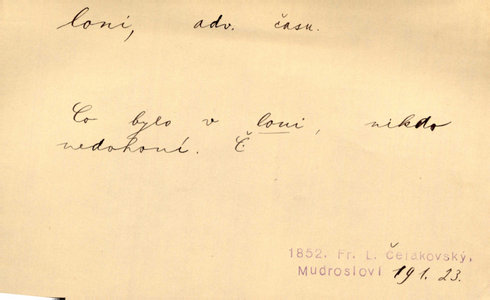 loni, adv. času.
Co bylo v loni, nikdo
nedohoní. Č
1852. Fr. L. Čelakovský,
Mudrosloví 191. 23.